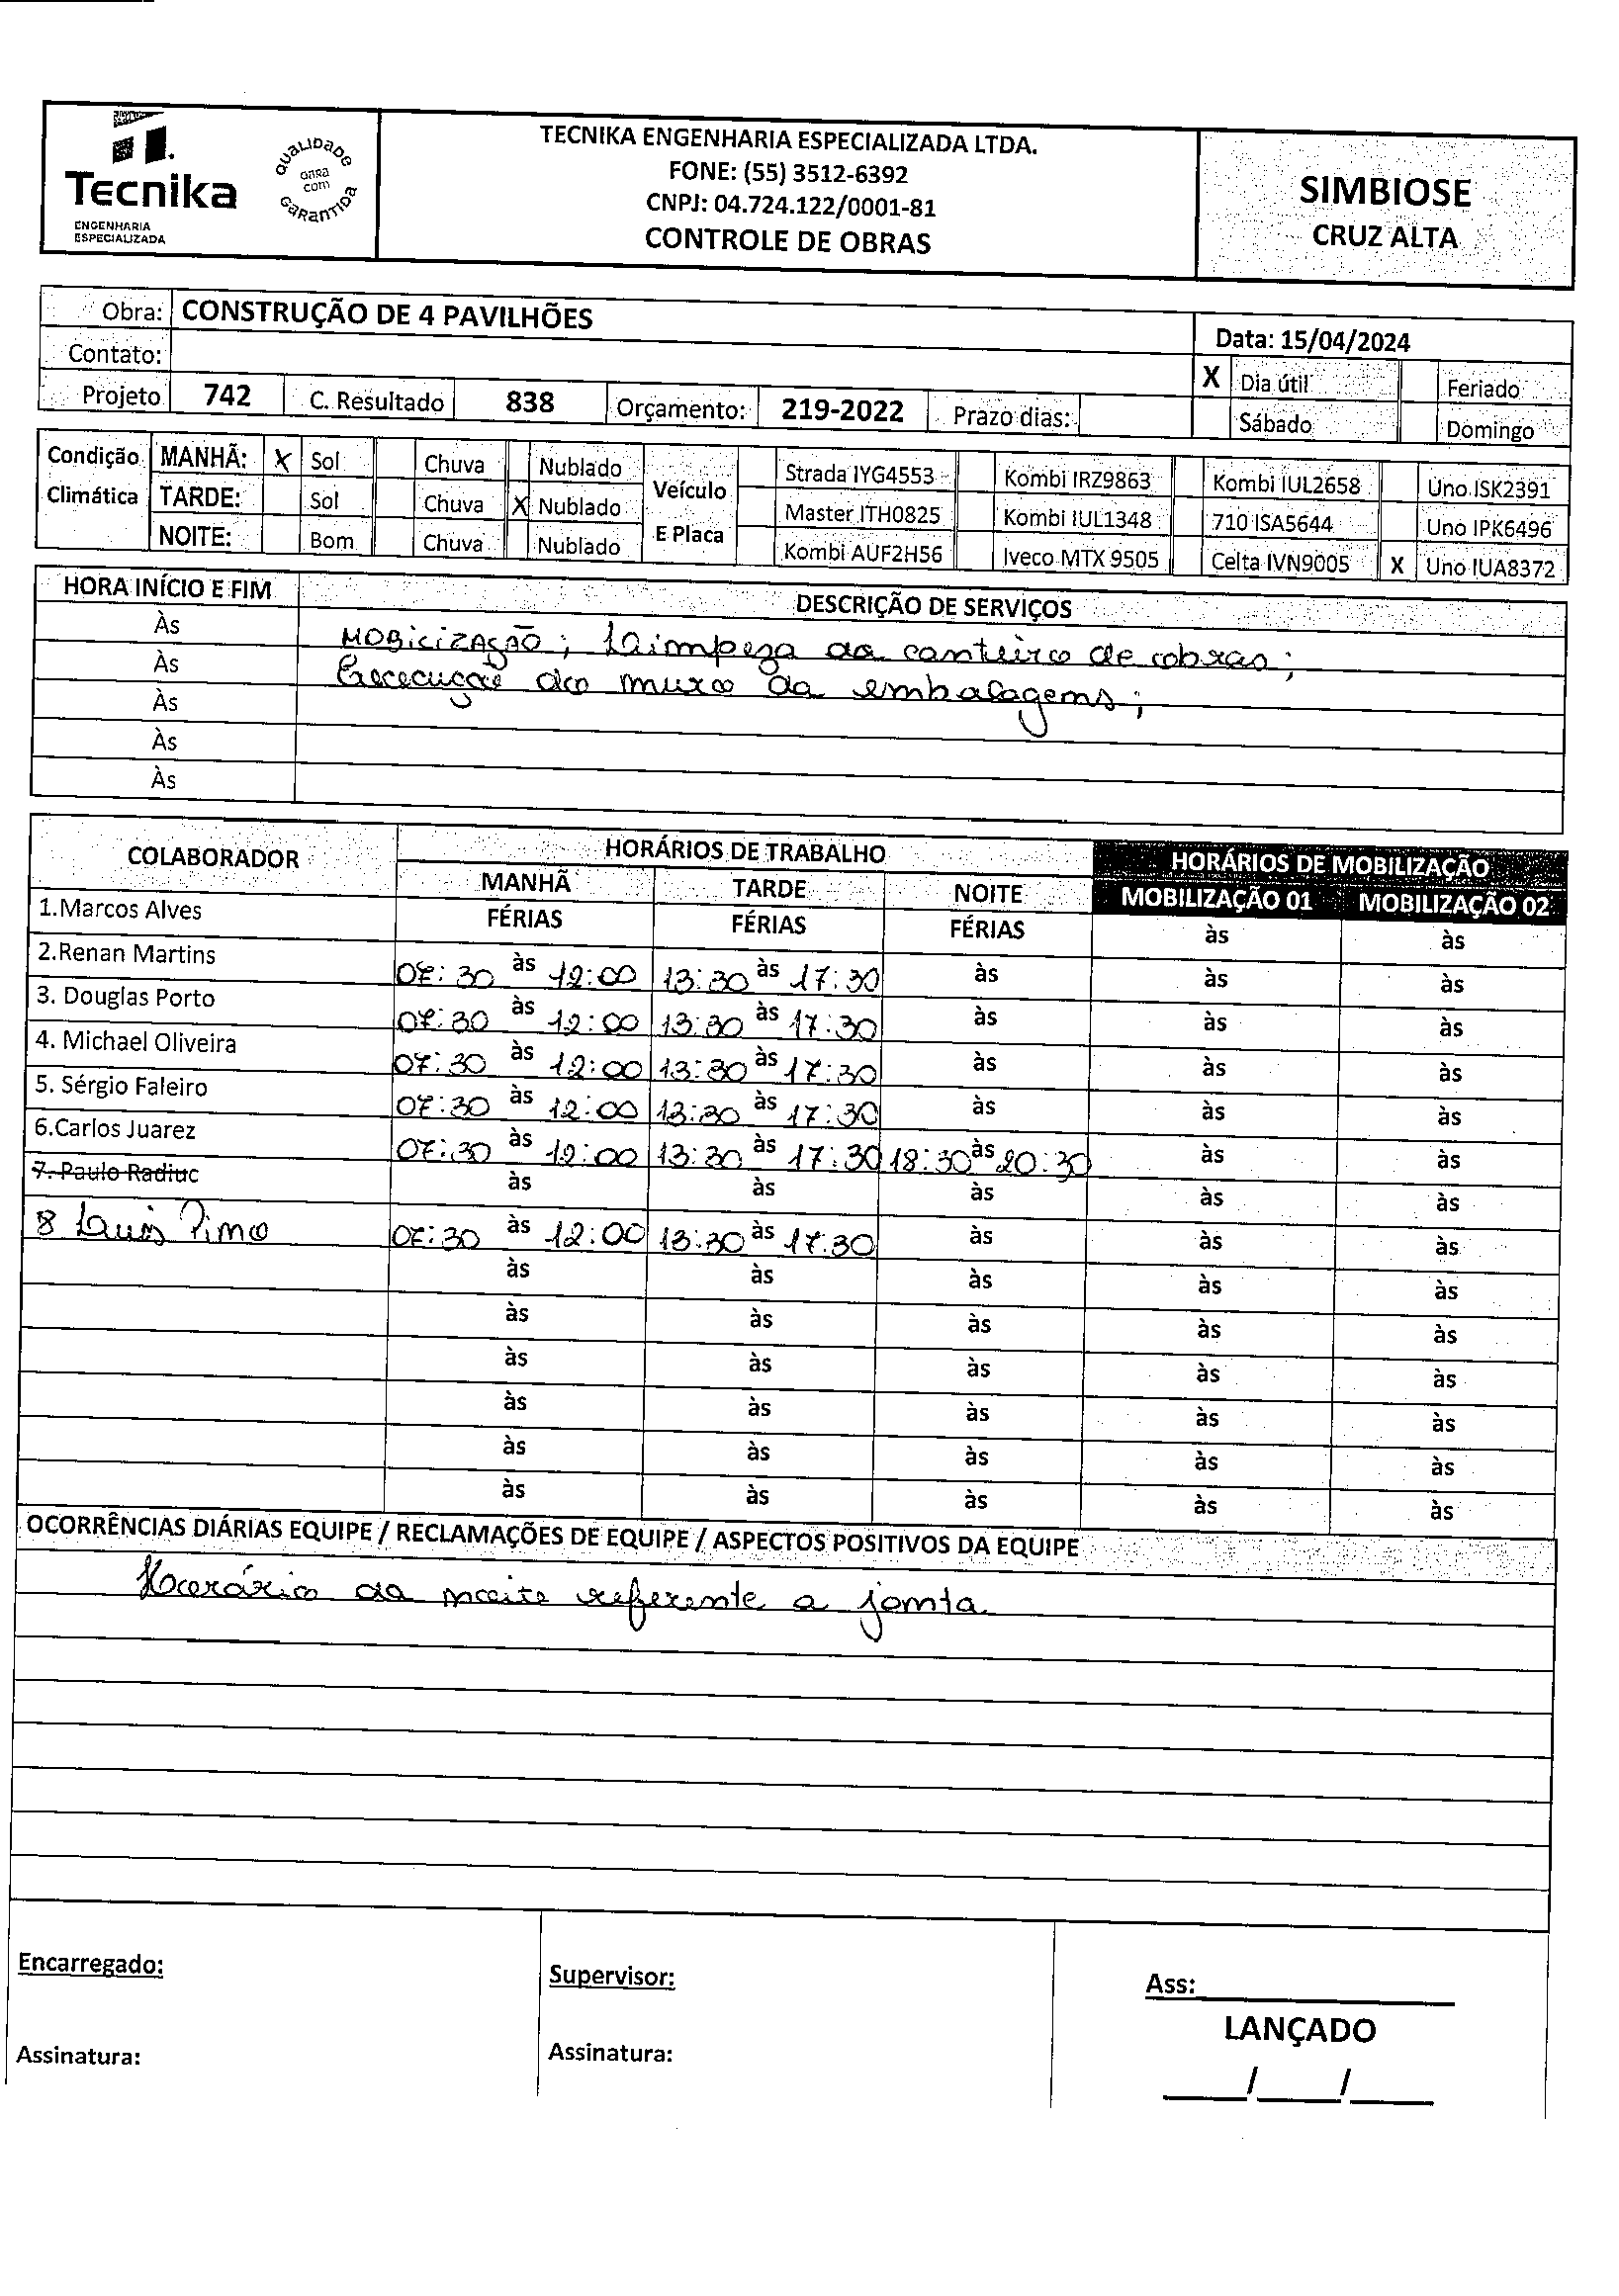 Tecnika
ENGENHARIA
ESPECIALIZADA
QUALIDADE
OBRA
COM
GARANTIDA
TECNIKA ENGENHARIA ESPECIALIZADA LTDA.
FONE: (55) 3512-6392
CNPJ: 04.724.122/0001-81
CONTROLE DE OBRAS
SIMBIOSE
CRUZ ALTA
Obra: CONSTRUÇÃO DE 4 PAVILHÕES
Data: 15/04/2024
Contato:
X Dia útil Feriado
Projeto 742 C. Resultado 838 Orçamento: 219-2022 Prazo dias:
Sábado Domingo
Condição Climática
MANHÃ: X Sol Chuva Nublado
TARDE: Sol Chuva X Nublado
NOITE: Bom Chuva Nublado
Veículo E Placa
Strada IYG4553 Kombi IRZ9863 Kombi IUL2658 Uno ISK2391
Master ITH0825 Kombi IUL1348 710 ISA5644 Uno IPK6496
Kombi AUF2H56 Iveco MTX 9505 Celta IVN9005 X Uno IUA8372
HORA INÍCIO E FIM DESCRIÇÃO DE SERVIÇOS
Às MOBILIZAÇÃO; Limpeza do canteiro de obras;
Às Execução do muro da embalagens;
Às
Às
Às
COLABORADOR HORÁRIOS DE TRABALHO HORÁRIOS DE MOBILIZAÇÃO
MANHÃ TARDE NOITE MOBILIZAÇÃO 01 MOBILIZAÇÃO 02
1.Marcos Alves FÉRIAS FÉRIAS FÉRIAS às às
2.Renan Martins 07:30 às 12:00 13:30 às 17:30 às às às
3. Douglas Porto 07:30 às 12:00 13:30 às 17:30 às às às
4. Michael Oliveira 07:30 às 12:00 13:30 às 17:30 às às às
5. Sérgio Faleiro 07:30 às 12:00 13:30 às 17:30 às às às
6.Carlos Juarez 07:30 às 12:00 13:30 às 17:30 18:30 às 20:30 às às
7. Paulo Radiuc às às às às às
8 Luis 07:30 às 12:00 13:30 às 17:30 às às às
às às às às às
às às às às às
às às às às às
às às às às às
às às às às às
às às às às às
OCORRÊNCIAS DIÁRIAS EQUIPE / RECLAMAÇÕES DE EQUIPE / ASPECTOS POSITIVOS DA EQUIPE
Horário da noite referente a janta
Encarregado:
Supervisor:
Ass:
LANÇADO
Assinatura:
Assinatura:
____/____/____